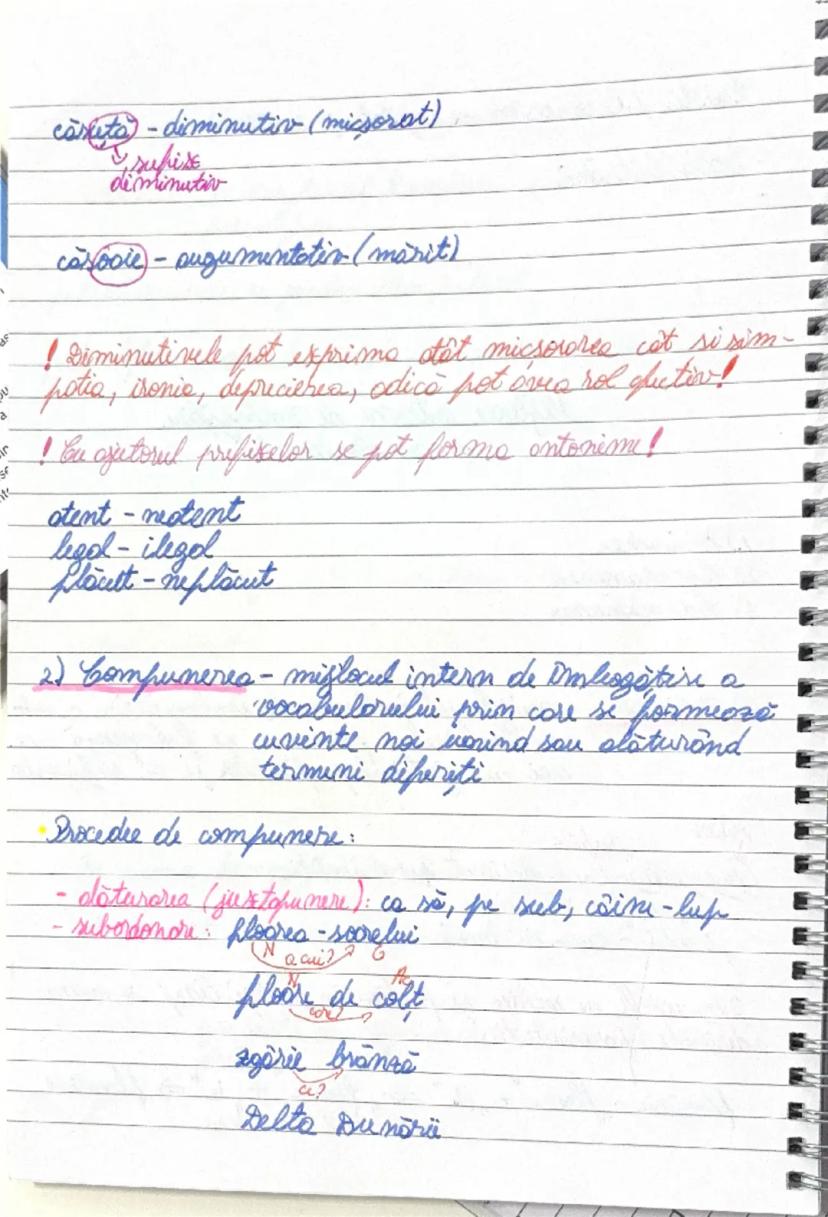 căsuță - diminutiv (micșorat)
↳ sufix
diminutiv
căsoaie - augumentativ (mărit)
! Diminutivele pot exprima atât micșorarea cât si sim-
patia, ironia, deprecierea, adică pot avea rol afectiv!
! Cu ajutorul prefixelor se pot forma antonime!
atent - neatent
legal - ilegal
plăcut - neplăcut
2) Compunerea - mijlocul intern de îmbogățire a
vocabularului prin care se formează
cuvinte noi unind sau alăturând
termeni diferiți
Procedee de compunere:
- alăturarea (juxtapunere): ca să, pe sub, câine-lup
- subordonare: floarea-soarelui
N a cui? G
N Ac
floare de colț
care?
zgârie brânză
ce?
Delta Dunării